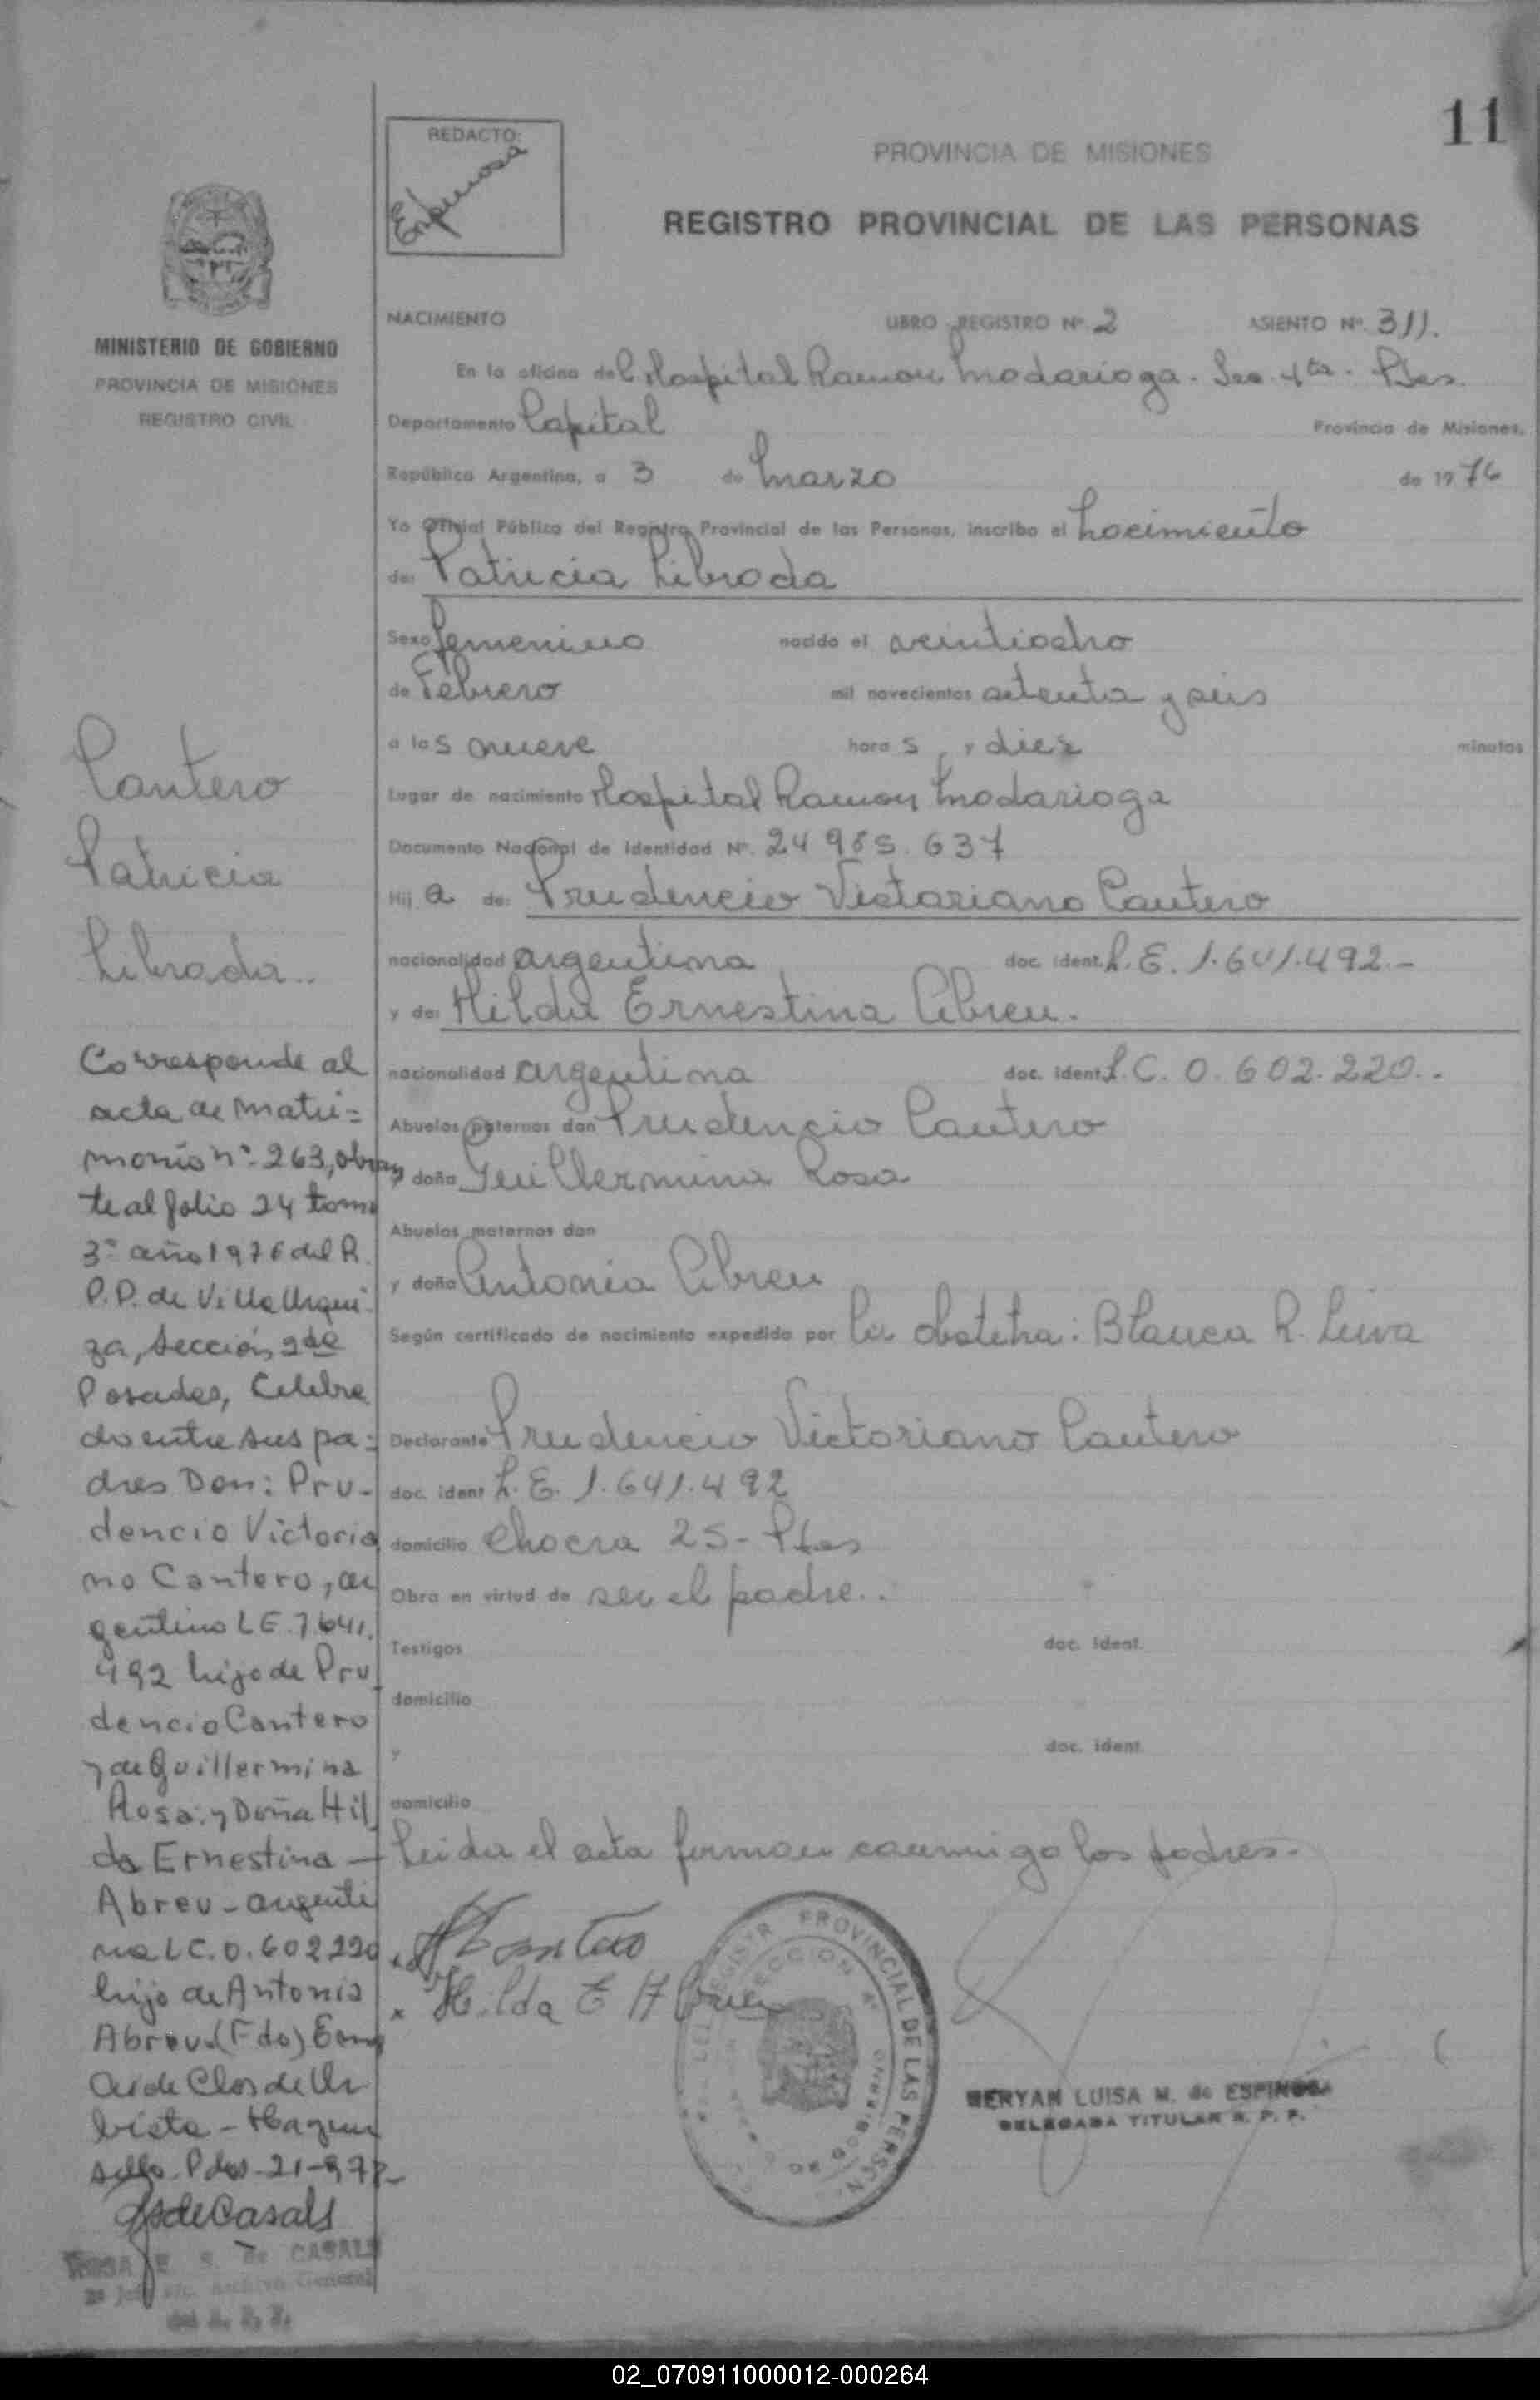 11
REDACTO:
Espinosa
PROVINCIA DE MISIONES
REGISTRO PROVINCIAL DE LAS PERSONAS
MINISTERIO DE GOBIERNO
PROVINCIA DE MISIONES
REGISTRO CIVIL
NACIMIENTO LIBRO REGISTRO Nº 2 ASIENTO Nº 311.
En la oficina del Hospital Ramon Madariaga - Sec. 4ta - Pdas.
Departamento Capital Provincia de Misiones,
República Argentina, a 3 de Marzo de 1976
Yo Oficial Público del Registro Provincial de las Personas, inscribo el Nacimiento
de: Patricia Librada
Sexo femenino nacido el veintiocho
de Febrero mil novecientos setenta y seis
a las nueve horas, y diez minutos
Lugar de nacimiento Hospital Ramon Madariaga
Documento Nacional de Identidad Nº. 24 985.637
Hij a de: Prudencio Victoriano Cantero
nacionalidad argentina doc. ident. L.E. 1.641.492.-
y de: Hilda Ernestina Abreu.
nacionalidad argentina doc. ident. L.C. 0.602.220..
Abuelos paternos don Prudencio Cantero
y doña Guillermina Rosa
Abuelos maternos don
y doña Antonia Abreu
Según certificado de nacimiento expedido por la obstetra: Blanca R. Leiva
Declarante Prudencio Victoriano Cantero
doc. ident L.E. 1.641.492
domicilio Chacra 25 - Pdas
Obra en virtud de ser el padre..
Testigos doc. ident.
domicilio
y doc. ident.
domicilio
Leida el acta firman conmigo los padres.-
Cantero
x Hilda E Abreu
REGISTRO PROVINCIAL DE LAS PERSON
SECCION 4ª
MERYAN LUISA M. de ESPINOSA
DELEGADA TITULAR R. P. P.
Cantero
Patricia
Librada..
Corresponde al
acta de matri=
monio nº 263, obran
te al folio 24 tomo
3º año 1976 del R.
P.P. de Villa Urqui
za, Sección 2da
Posadas, Celebra
do entre sus pa=
dres Don: Pru-
dencio Victoria
no Cantero, ar
gentino LE. 7.641.
492 hijo de Pru
dencio Cantero
y de Guillermina
Rosa y Doña Hil
da Ernestina -
Abreu - argenti
na LC. 0.602.220
hija de Antonia
Abreu (Fdo)
sello. Pdas - 21-
RsdeCasals
ROSA E. S. de CASALS
Archivo General
del R. P. P.
02_070911000012-000264